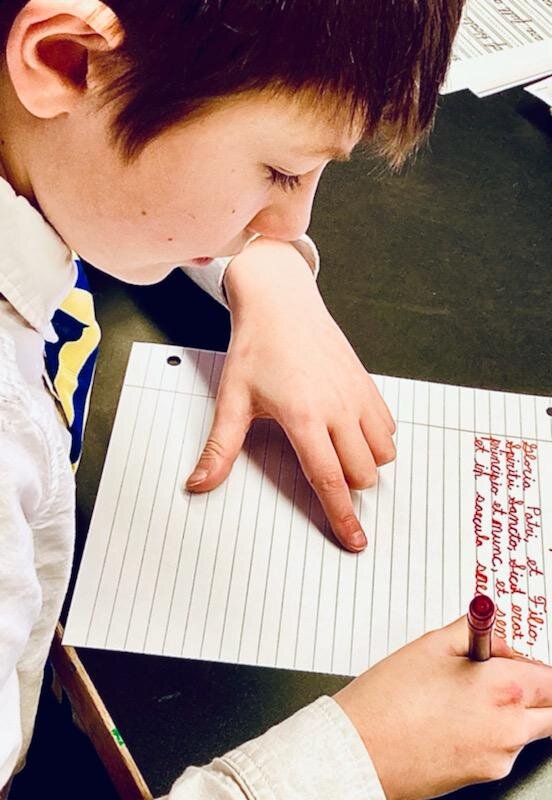 Gloria Patri, et Filio,
Spiritui Sancto, Sicut erat
principio et nunc, et sem
et in saecula sae